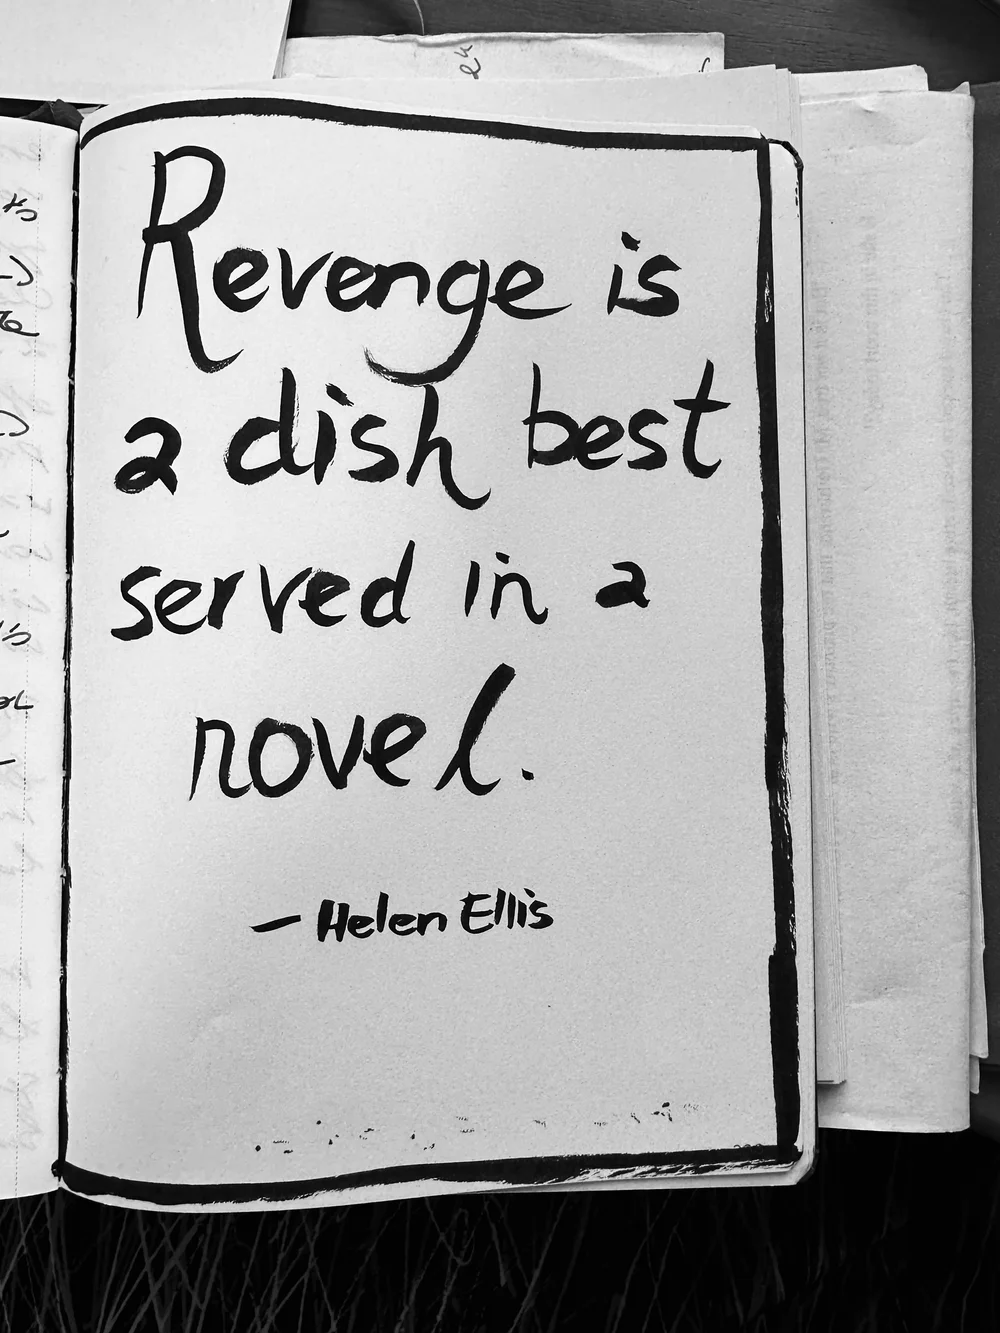 Revenge is
a dish best
served in a
novel.
— Helen Ellis